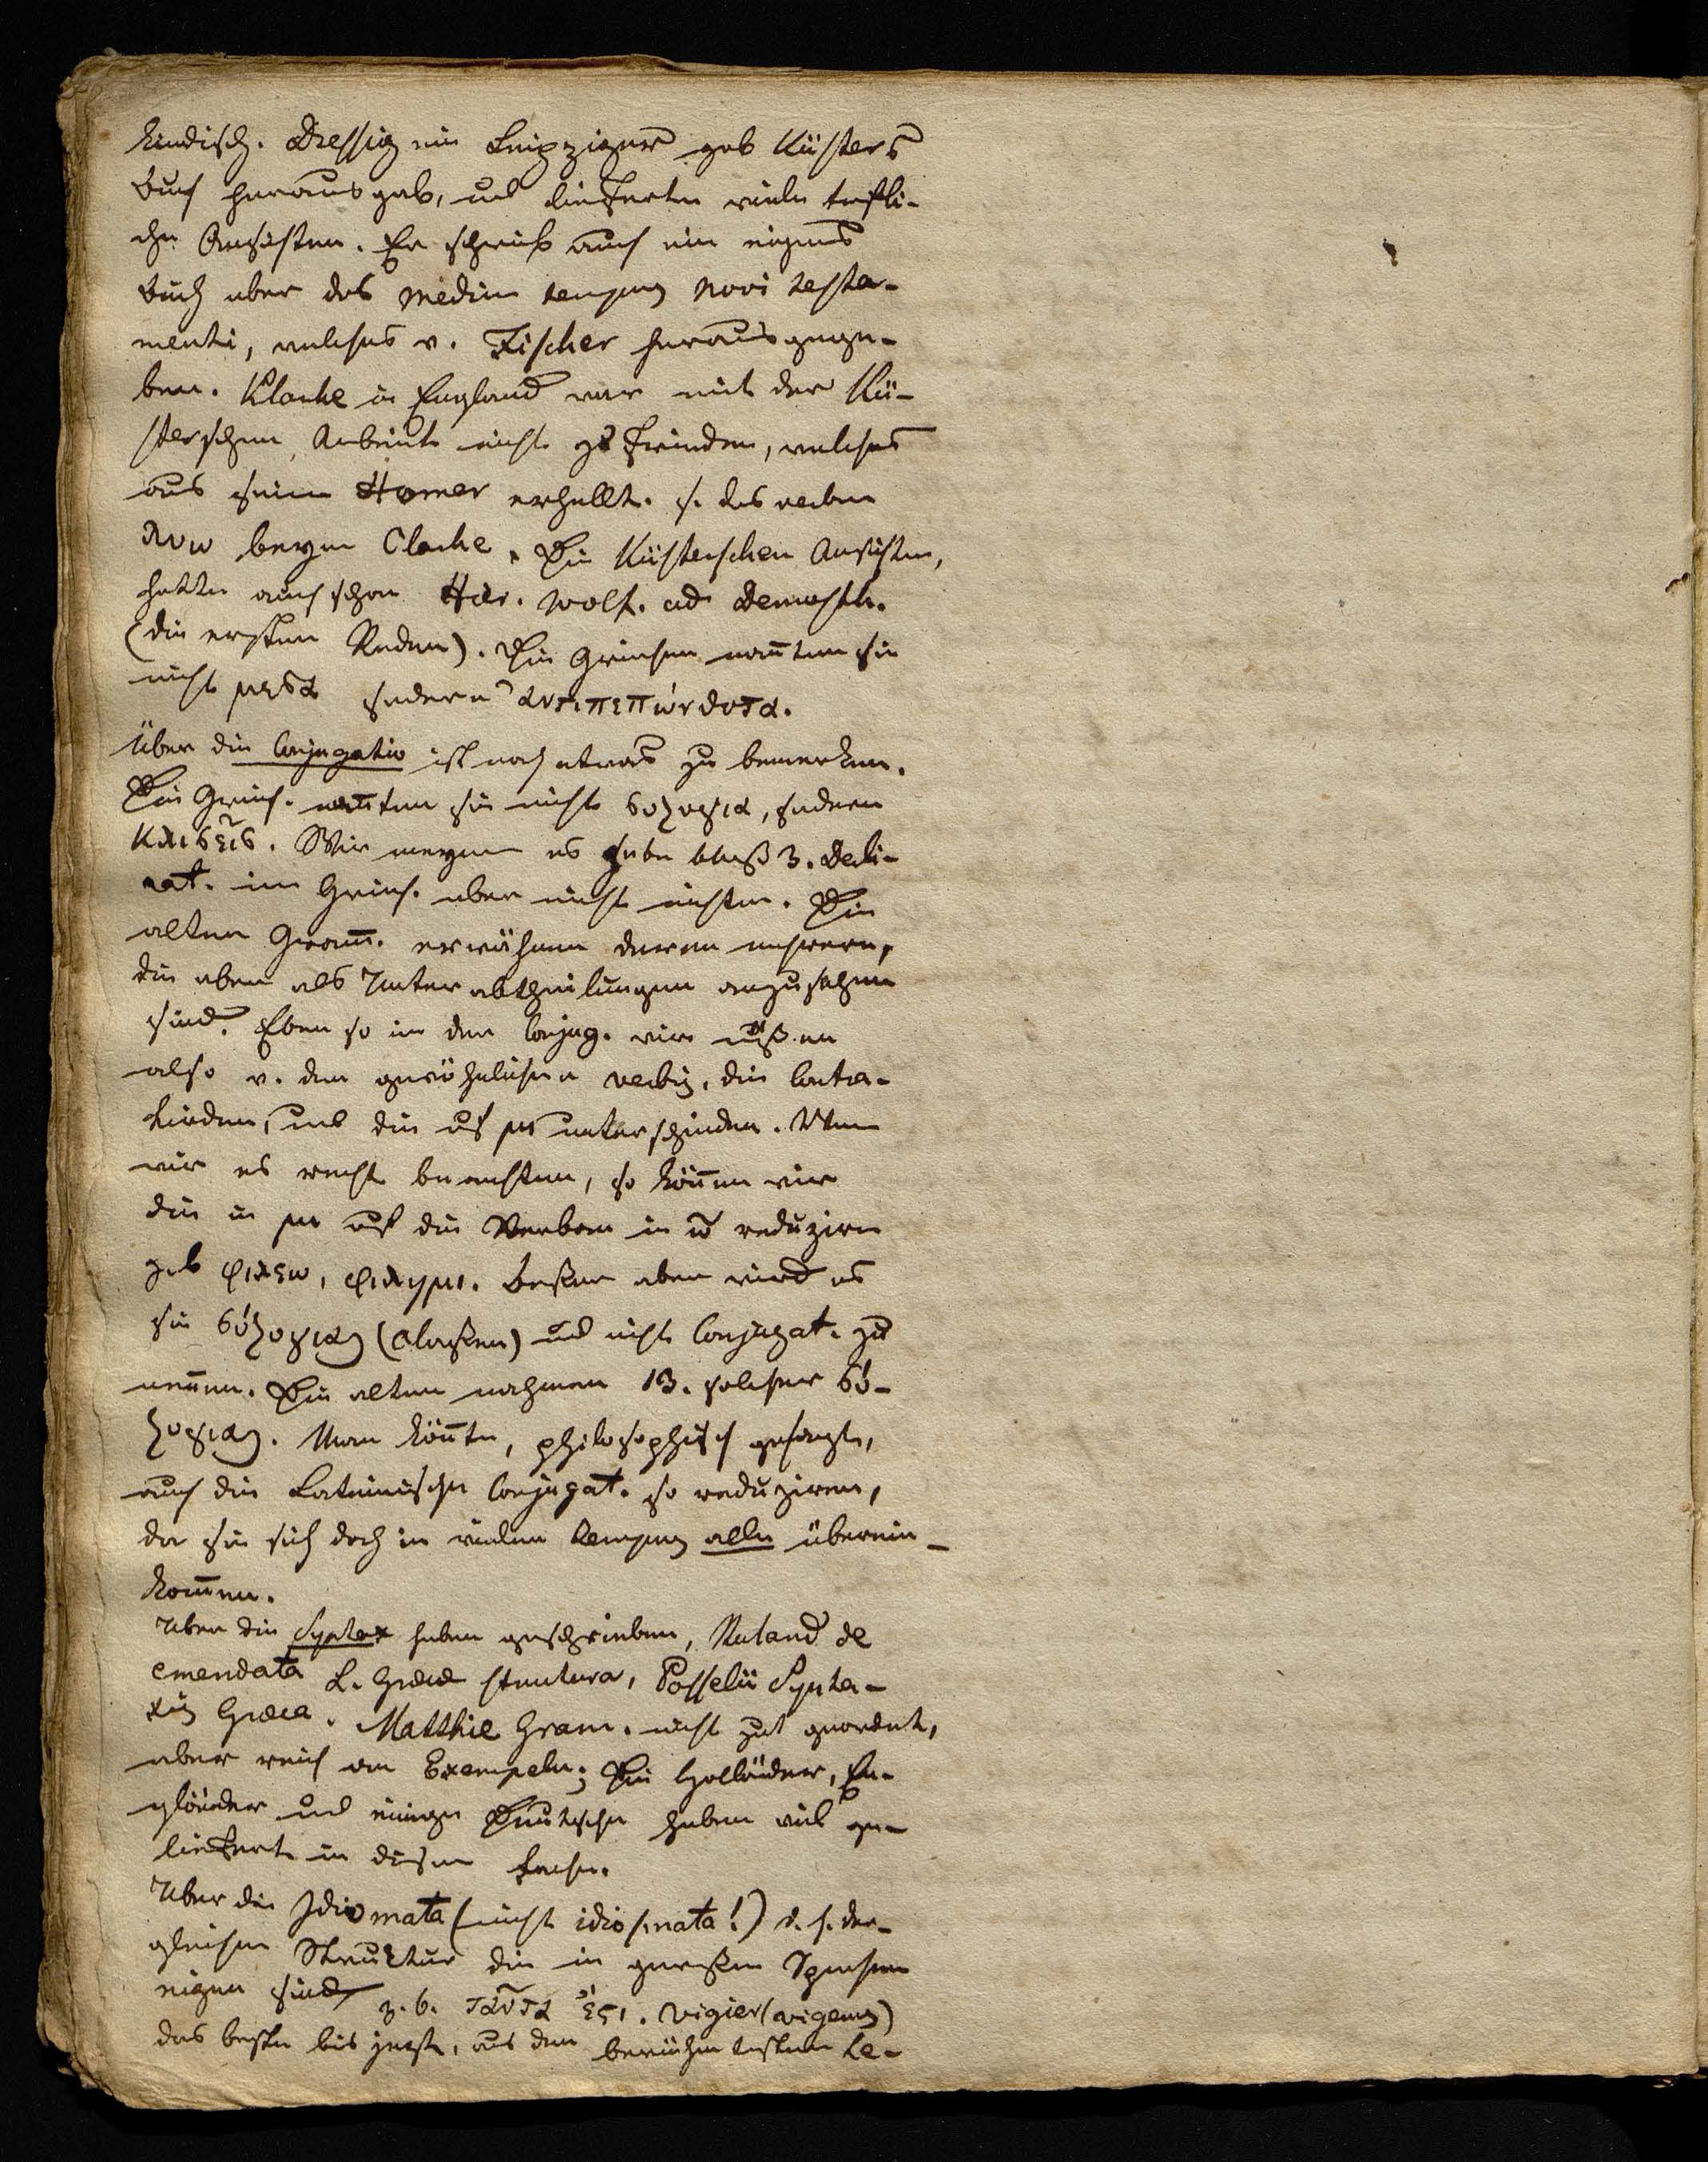 kindisch. Dressig ein Leipziger gab Küsters
Buch heraus gab, und lieferte viele trefli-
che Ansichten. Er schrieb auch ein eignes
Buch über das Medium tempus Novi testa-
menti, welches v. Fischer herausgege-
ben. Klarke in England war mit der Kü-
sterschen Arbeit nicht zufrieden, welches
aus seinem Homer erhellt. s. das verbum
λυω beym Clarke. Die Küsterschen Ansichten,
hatte auch schon Hier. Wolf. ad Demosth.
(die ersten Reden). Die Griechen nannten sie
nicht μεσα sondern αντιπεπόνθοτα.
Über die Conjugatio ist noch etwas zu bemerken.
Die Griech. nannten sie nicht συζυγια, sondern
κλισεις. Wir meynen es gebe blos 3. Decli-
nat. im Griech. aber nicht richtig. Die
alten Gram̅. erwähnen deren mehrere,
die aber als Unterabtheilungen anzusehen
sind. Eben so in der Conjug. wir müßen
also v. den gewöhnlichen verbis, die Contra-
hirden, und die auf μι unterscheiden. Wenn
wir es recht beachten, so kön̅en wir
die in μι auf die Verben in ω reduziren
z.b. φιλεω, φιλημι. Besser aber wird es
sie συζυγιας (Classen) und nicht Conjugat. zu
nen̅en. Die alten nahmen 13. solcher συ-
ζυγιας. Man kön̅te, philosophisch gesagt,
auch die Lateinische Conjugat. so reduziren,
da sie sich doch in vielen tempus alle überein-
kom̅en.
Über die Syntax haben geschrieben, Ruland de
emendata L. Græcæ structura, Posselii Synta-
xis Græca. Matthiæ Gram. nicht gut geordnet,
aber reich an Exempeln; Die Holländer, En-
gländer und einige Deutsche haben viel ge-
liefert in diesem Fache.
Über die Idiomata (nicht idiosmata!) d. h. der-
gleichen Struktur die in gewißen Sprachen
eigen sind z. b. ταῦτα ἐϛι. Vigier (vigerus)
das beste bis jetzt, aus den berühmtesten Le-